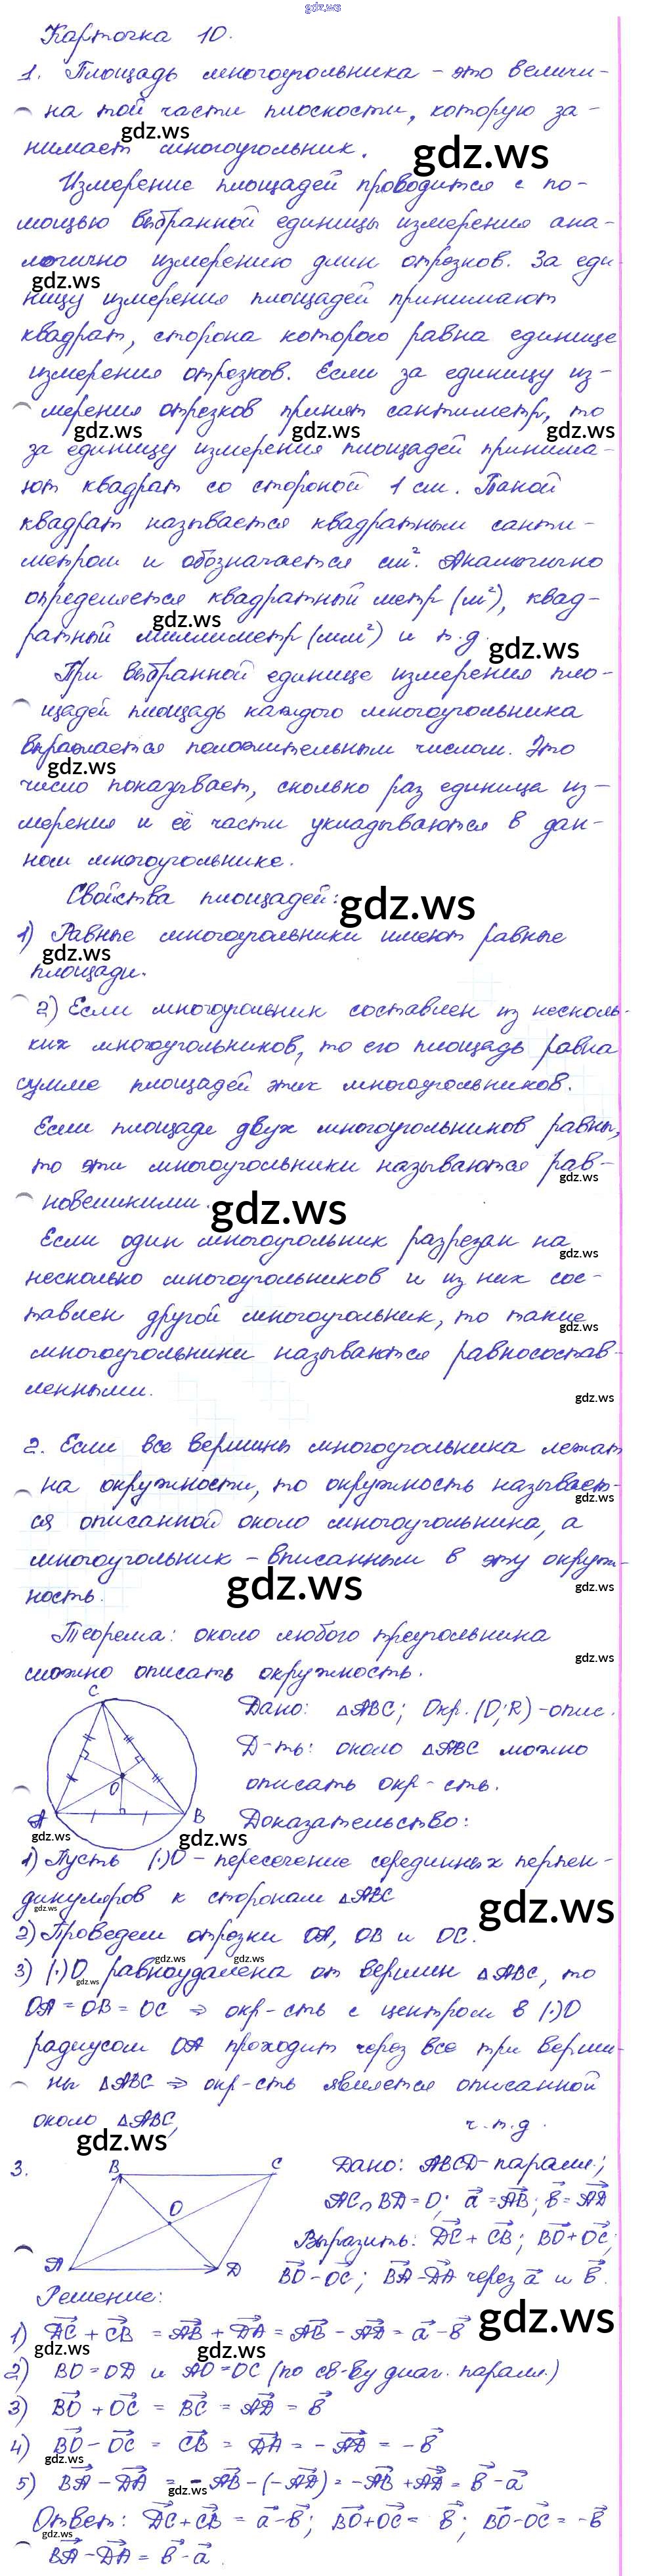 gdz.ws
Карточка 10.
1. Площадь многоугольника – это величи-
на той части плоскости, которую за-
gdz.ws
нимает многоугольник.
gdz.ws
Измерение площадей проводится с по-
мощью выбранной единицы измерения ана-
логично измерению длин отрезков. За еди-
gdz.ws
ницу измерения площадей принимают
квадрат, сторона которого равна единице
измерения отрезков. Если за единицу из-
мерения отрезков принят сантиметр, то
gdz.ws gdz.ws gdz.ws
за единицу измерения площадей принима-
ют квадрат со стороной 1 см. Такой
квадрат называется квадратным санти-
метром и обозначается см². Аналогично
определяется квадратный метр (м²), квад-
gdz.ws
ратный миллиметр (мм²) и т.д.
gdz.ws
При выбранной единице измерения пло-
щадей площадь каждого многоугольника
выражается положительным числом. Это
gdz.ws
число показывает, сколько раз единица из-
мерения и её части укладываются в дан-
ном многоугольнике.
Свойства площадей:
gdz.ws
1) Равные многоугольники имеют равные
gdz.ws
площади.
2) Если многоугольник составлен из несколь-
ких многоугольников, то его площадь равна
сумме площадей этих многоугольников.
Если площади двух многоугольников равны,
то эти многоугольники называются рав-
gdz.ws
новеликими.
gdz.ws
Если один многоугольник разрезан на
gdz.ws
несколько многоугольников и из них сос-
тавлен другой многоугольник, то такие
gdz.ws
многоугольники называются равносостав-
ленными.
gdz.ws
2. Если все вершины многоугольника лежат
на окружности, то окружность называет-
gdz.ws
ся описанной около многоугольника, а
многоугольник – вписанным в эту окруж-
gdz.ws
ность.
gdz.ws
Теорема: около любого треугольника
gdz.ws
можно описать окружность.
C
O
A
B
Дано: △ABC; Окр. (O; R) – опис.
Д-ть: около △ABC можно
описать окр-сть.
Доказательство:
gdz.ws gdz.ws
1) Пусть (·)O – пересечение серединных перпен-
дикуляров к сторонам △ABC
gdz.ws gdz.ws
2) Проведем отрезки OA, OB и OC.
gdz.ws gdz.ws
3) (·)O равноудалена от вершин △ABC, то
gdz.ws
OA = OB = OC ⇒ окр-сть с центром в (·)O
радиусом OA проходит через все три верши-
ны △ABC ⇒ окр-сть является описанной
около △ABC, ч.т.д.
gdz.ws
3.
B
C
O
A
D
Дано: ABCD – паралл.;
AC∩BD = O; a⃗ = AB⃗; b⃗ = AD⃗
Выразить: DC⃗ + CB⃗; BO⃗ + OC⃗;
BO⃗ – OC⃗; BA⃗ – DA⃗ через a⃗ и b⃗.
Решение:
gdz.ws
1) DC⃗ + CB⃗ = AB⃗ + DA⃗ = AB⃗ – AD⃗ = a⃗ – b⃗
gdz.ws gdz.ws
2) BO = OD и AO = OC (по св-ву диаг. паралл.)
3) BO⃗ + OC⃗ = BC⃗ = AD⃗ = b⃗
4) BO⃗ – OC⃗ = CB⃗ = DA⃗ = – AD⃗ = – b⃗
gdz.ws
5) BA⃗ – DA⃗ = – AB⃗ – (– AD⃗) = – AB⃗ + AD⃗ = b⃗ – a⃗
gdz.ws
Ответ: DC⃗ + CB⃗ = a⃗ – b⃗; BO⃗ + OC⃗ = b⃗; BO⃗ – OC⃗ = – b⃗
gdz.ws
BA⃗ – DA⃗ = b⃗ – a⃗.